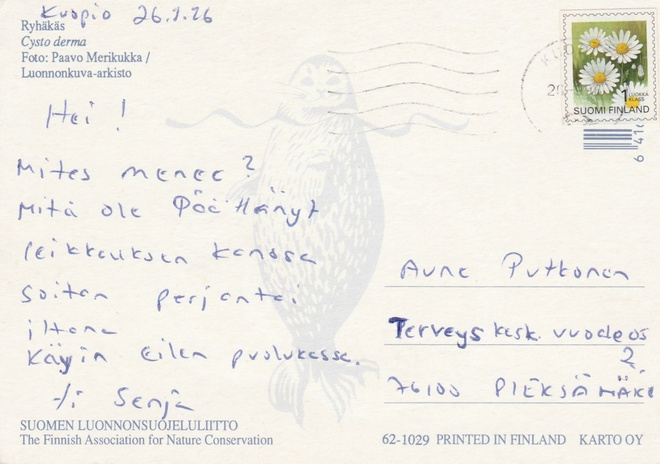 Kuopio
Ryhäkäs
Cysto derma
Foto: Paavo Merikukka /
Luonnonkuva-arkisto
Hei!
Mites menee?
Mitä ole Pöättänyt
leikkauksen kanssa
Soitan perjantai
iltana
Käyin eilen puolukassa.
-/i Senja
SUOMEN LUONNONSUOJELULIITTO
The Finnish Association for Nature Conservation
1 LUOKKA
KLASS
SUOMI FINLAND
Aune Putkonen
Terveyskesk. vuodeos
2
76100 PIEKSÄMÄKI
62-1029 PRINTED IN FINLAND KARTO OY